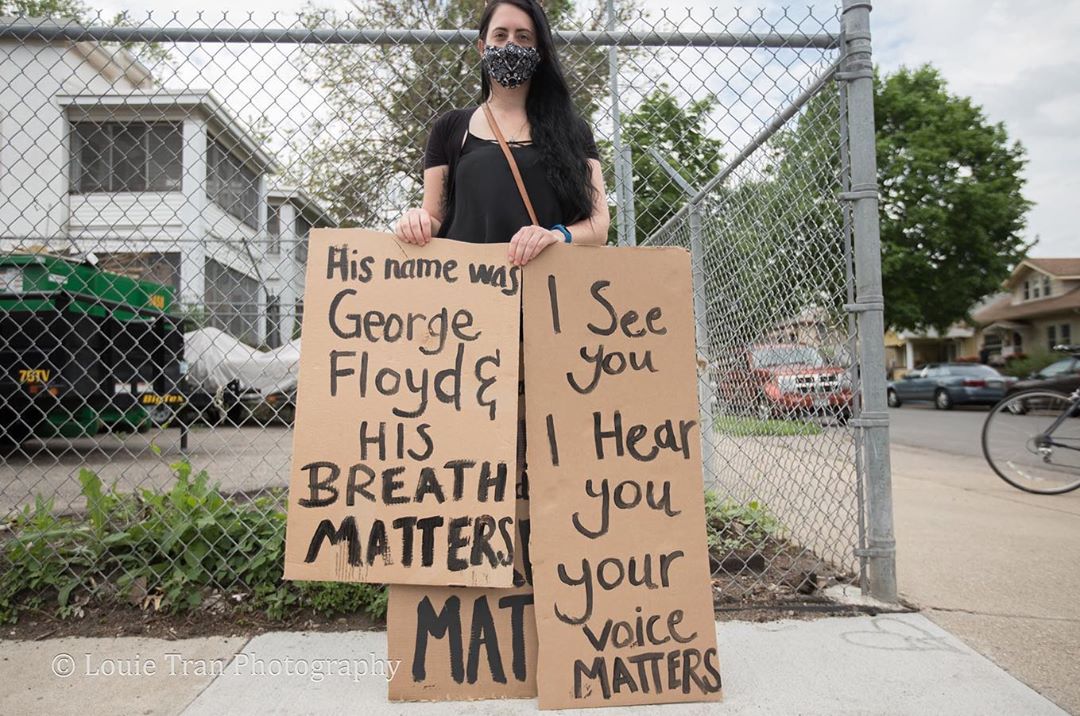 His name was
George
Floyd &
HIS
BREATH
MATTERS
I See
you
I Hear
you
your
voice
MATTERS
MAT
76TV
BigTex
© Louie Tran Photography